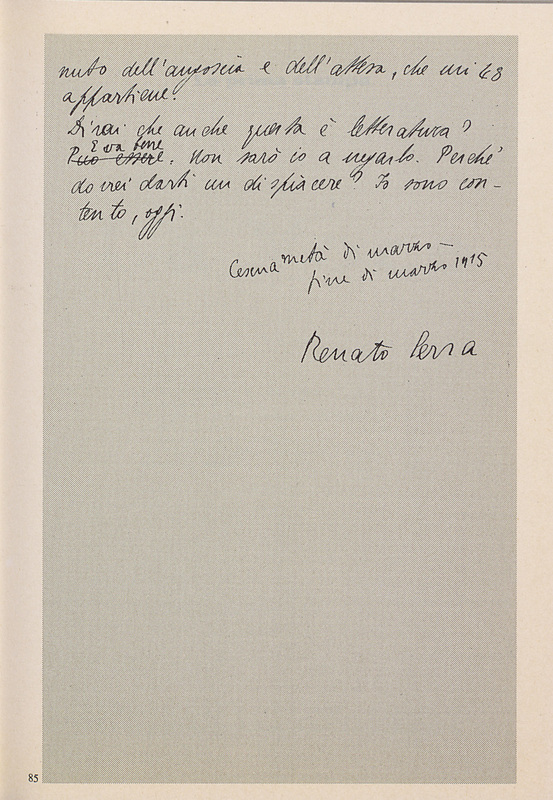 nuto dell'angoscia e dell'attesa, che mi
appartiene.
Dirai che anche questa è letteratura?
E va bene
Può essere. Non sarò io a negarlo. Perché
dovrei darti un dispiacere? Io sono con-
tento, oggi.
Cesena metà di marzo –
fine di marzo 1915
Renato Serra
85